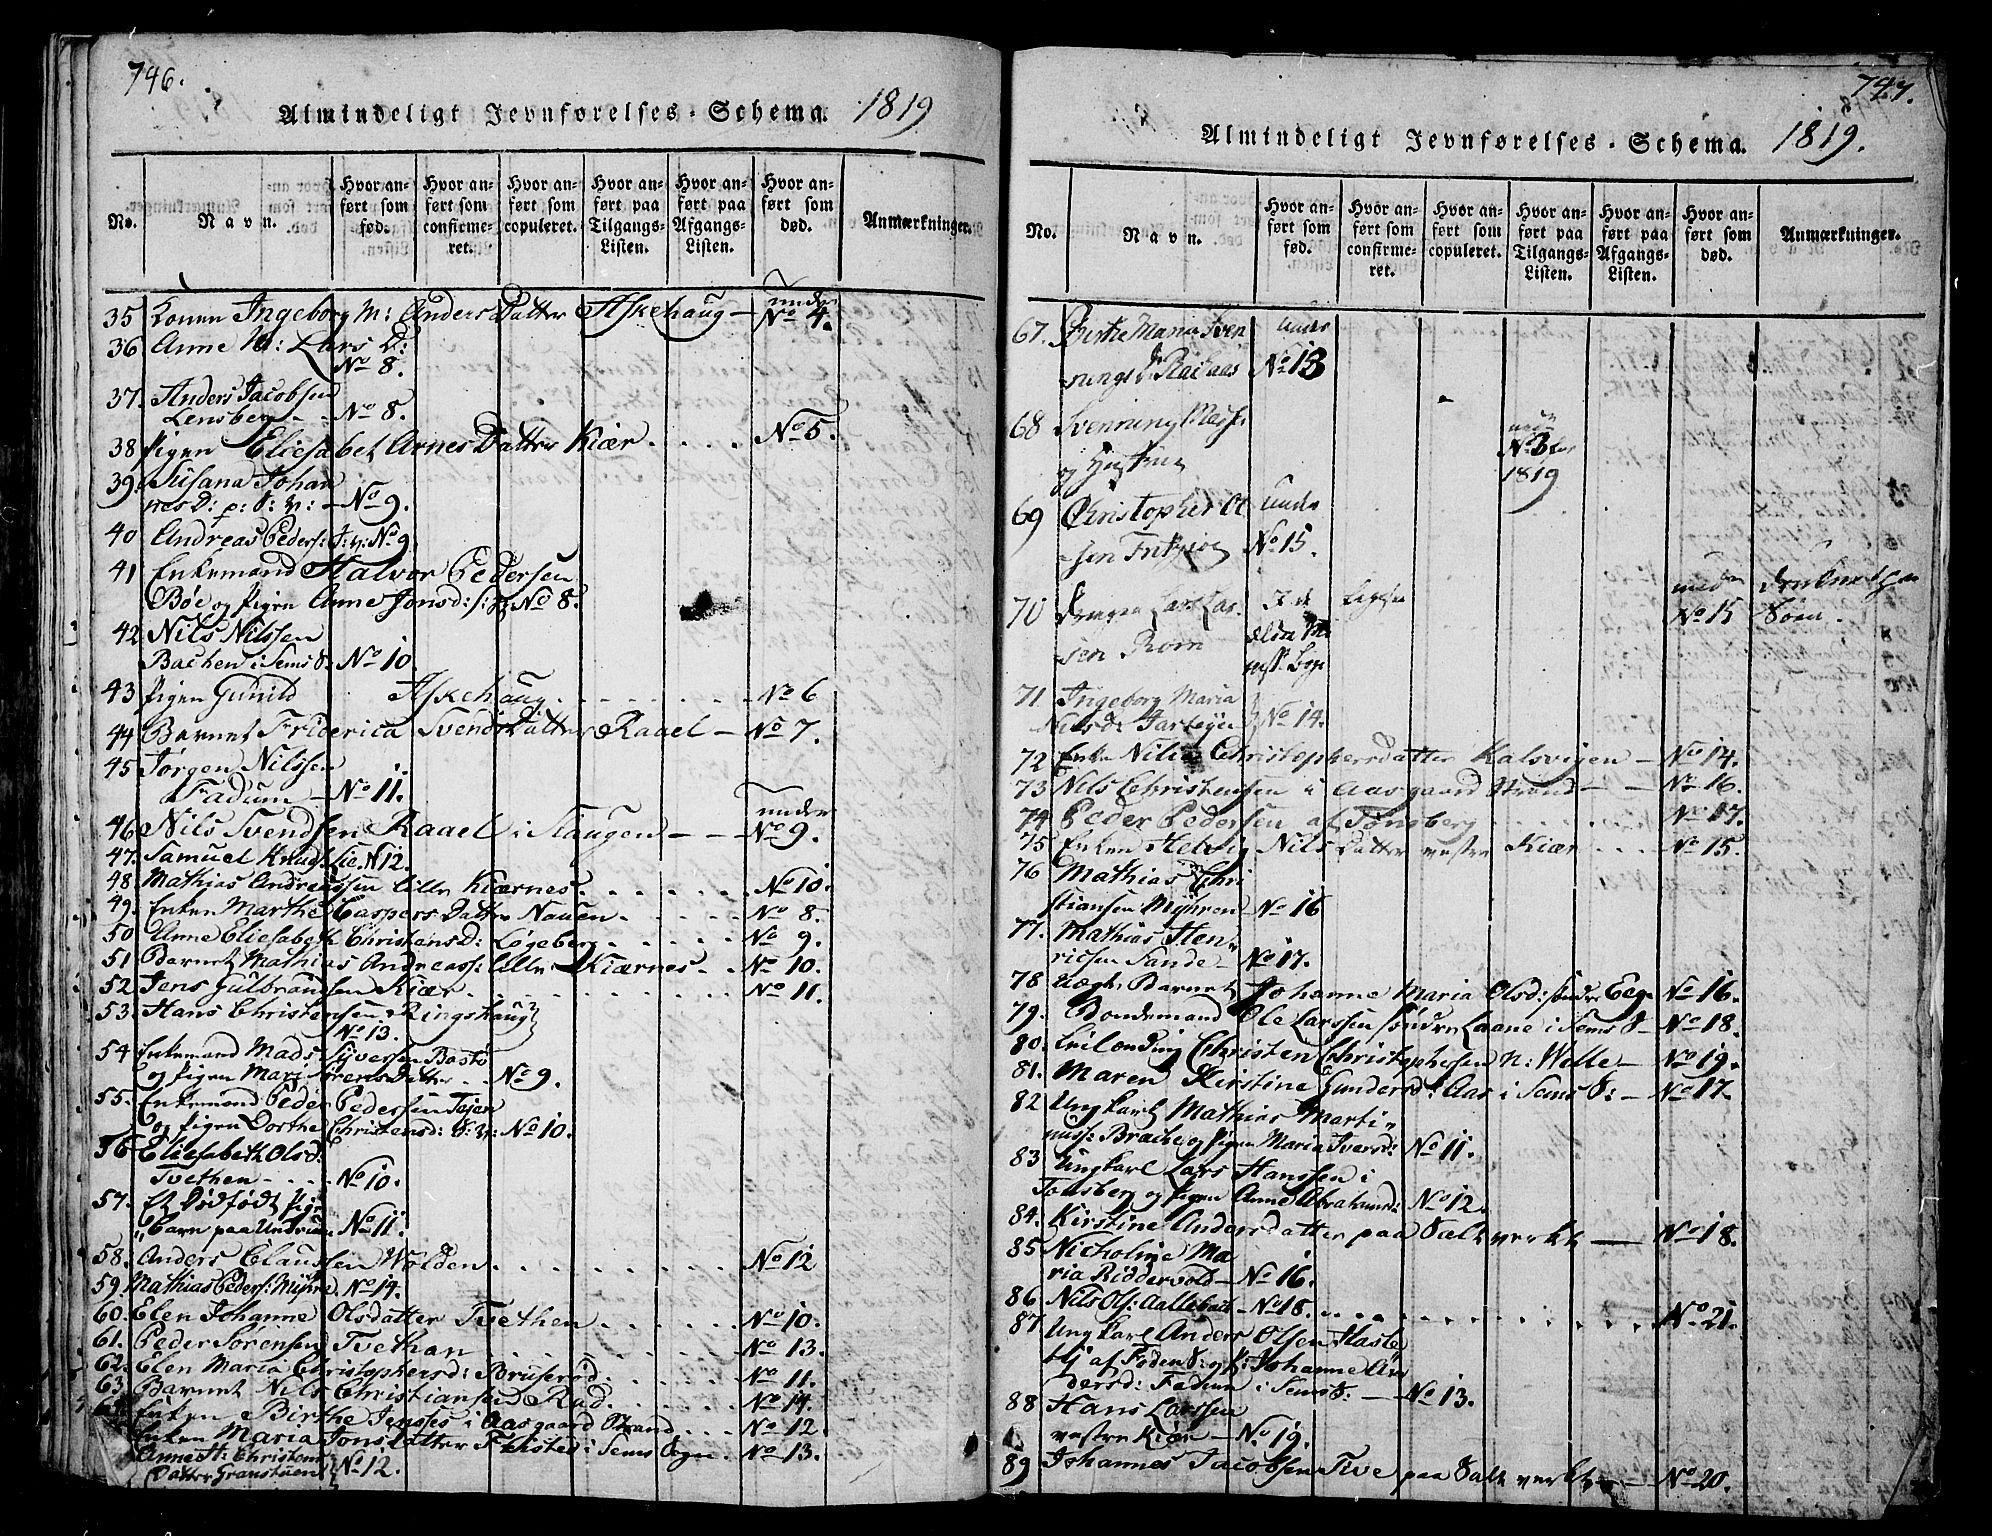 746.
Almindeligt Jevnførelses-Schema. 1819
No.
Navn.
Hvor anført som fød.
Hvor anført som confirmeret.
Hvor anført som copuleret.
Hvor anført paa Tilgangs-Listen.
Hvor anført paa Afgangs-Listen.
Hvor anført som død.
Anmærkninger.
35 Konen Ingeborg M: Anders Datter Askehaug — under No 4.
36 Anne M: Lars D:
No 8.
37. Anders Jacobsen
Lensberg - - No 8.
38 Pigen Eliesabet Arnes Datter Kiær . . . . No 5.
39. Susana Johan
nesD: p: S: V: — No 9.
40 Andreas Peders: S: V: No 9
41 Enkemand Halvor Pedersen
Bøe og Pigen Anne Jonsd: S: V: No 8.
42 Nils Nilssen
Bachen i Sems S. No 10.
43 Pigen Gunild Askehaug . . . . No 6
44 Barnet Friderica Svends Datter Raael — No 7.
45 Jørgen Nilssen
Fadum — No 11.
46 Nils Svendsen Raael i Slaugen — — under No 9.
47. Samuel Knuds: Lie. N 12.
48. Mathias Andreassen Lille Kiærnes . . . . No 10.
49. Enken Marthe Caspers Datter Nauen . . . . No 8.
50 Anne Eliesabeth Christensd: Løgeberg . . . . No 9.
51 Barnet Mathias Andreass: Lille Kiærnes . . No 10.
52 Jens Gulbrandsen Kiær . . . . No 11.
53. Hans Christensen Ringshaug
No 13.
54 Enkemand Mads Syversen Bastø
og Pigen Mari Sørens Datter . . No 9.
55. Enkemand Peder Pedersen Teien
og Pigen Dorthe Christensd: S: V: No 10.
56 Eliesabeth Olsd:
Tvethen - - - No 10.
57. Et Dødfødt Pige
Barn paa Undrum. No 11.
58. Anders Claussen Wolden . . . . No 12
59. Mathias Peders: Myhre. No 14.
60. Elen Johanne Olsdatter Tvethen . . . . No 10.
61. Peder Sørensen Tvethan . . . . No 13.
62. Elen Maria Christophersd: Bruserød . . . . No 11.
63. Barnet Nils Christiansen Rød . . . . No 14.
Enken Birthe Jenses i Aasgaard Strand . . . No 12
Enken Maria Jons Datter Fehsted i Sems Sogn . No 13.
Anne H: Christen
Datter Granstuen No 12.
747.
Almindeligt Jevnførelses-Schema. 1819.
No.
Navn.
Hvor anført som fød.
Hvor anført som confirmeret.
Hvor anført som copuleret.
Hvor anført paa Tilgangs-Listen.
Hvor anført paa Afgangs-Listen.
Hvor anført som død.
Anmærkninger.
67. Birthe Maria Sven under
nings d. No 13
68 Svenning
og Hustrue No 3
1819
69 Christopher Ol under
sen No 15.
70 Drengen Lars Lar
sen Rom under No 15 Søen.
71 Ingeborg Maria
Nilsd: Jarteyen No 14.
72 Enke Nilia Christophersdatter Kalsvigen — No 14.
73 Nils Christensen i Aasgaard Strand — — No 16.
74 Peder Pedersen af Tønsberg . . . . No 17.
75 Enken Helvig Nils Datter vestre Kiær . . . No 15.
76 Mathias Chri
stiansen Myhren — No 16
77. Mathias Hen
ricsen Sande — No 17.
78 Uægte Barnet Johanne Maria Olsd: søndre Eeg. No 16.
79. Bondemand Ole Larssen søndre Laane i Sems S — No 18.
80. Christen Christophersen n: Welle — No 19.
81. Maren Kirstine Gundersd: Aas i Sems S: — No 17
82 Ungkarl Mathias Marti
nuss: Bracke og Pigen Maria Iversd: No 11.
83 Ungkarl Lars Hanssen i
Tønsberg og Pigen Anne Abrahamsd: No 12.
84. Kirstine Andersdatter paa Saltverket — No 18.
85 Nicholine Ma
ria Riddervold — No 16.
86 Nils Ols: Aallebach — No 18. . . . . No 21.
87 Ungkarl Anders Olsen Hasle
af Føden S: og P: Johanne An
dersd: Fadum i Sems S. — No 13.
88 Hans Larssen
vestre Kiær — No. 19.
89 Johannes Jacobsen Tive paa Saltverket — No 20.